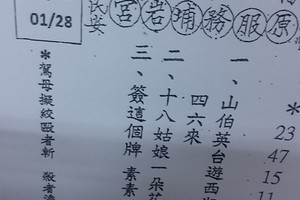 原服務埔岩宮
*
23
47
15
11
一、山伯英台遊西
四六來
二、十八姑娘一朵
三、簽這個牌 素素
01/28
*駕母擬絞毆者斬 殺者